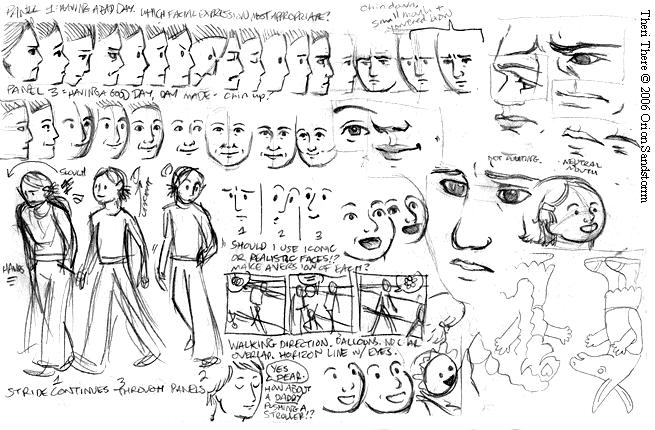 PANEL 1: HAVING A BAD DAY. WHICH FACIAL EXPRESSION MOST APPROPRIATE?
chin down,
small mouth +
lowered brow
PANEL 3 = HAVING A GOOD DAY, DAY MADE - CHIN UP?
SLOUCH
HANDS
1
3
2
STRIDE CONTINUES THROUGH PANELS
1
2
3
"SHOULD I USE ICONIC
OR REALISTIC FACES!?
MAKE A VERSION OF EACH?"
WALKING DIRECTION. BALLOONS. NO CHAR
OVERLAP. HORIZON LINE W/ EYES.
YES
DEAR.
HOW ABOUT
A DADDY
PUSHING A
STROLLER!?
NOT POUTING.
NEUTRAL
MOUTH
Theri There © 2006 OrionSandstorrm